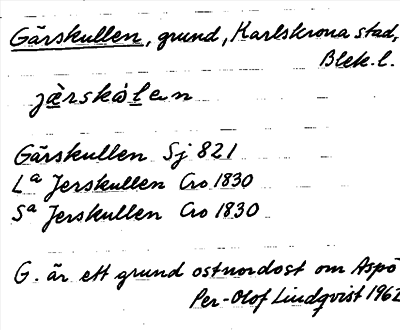 Gärskullen, grund, Karlskrona stad,
Blek.l.
jæ̀rskòlen
Gärskullen Sj 821
La Jerskullen Cro 1830
Sa Jerskullen Cro 1830
G. är ett grund ostnordost om Aspö
Per-Olof Lindqvist 1962